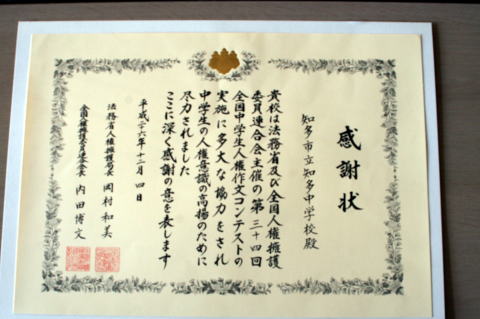 感謝状
知多市立知多中学校殿
貴校は法務省及び全国人権擁護
委員連合会主催の第三十四回
全国中学生人権作文コンテストの
実施に多大な協力をされ
中学生の人権意識の高揚のために
尽力されました
ここに深く感謝の意を表します
平成二十六年十二月四日
法務省人権擁護局長 岡村和美
全国人権擁護委員連合会長 内田博文